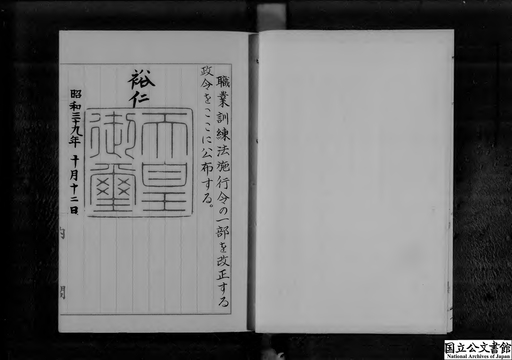 職業訓練法施行令の一部を改正する
政令をここに公布する。
裕仁
天皇
御璽
昭和三十九年十月十二日
内閣
国立公文書館
National Archives of Japan